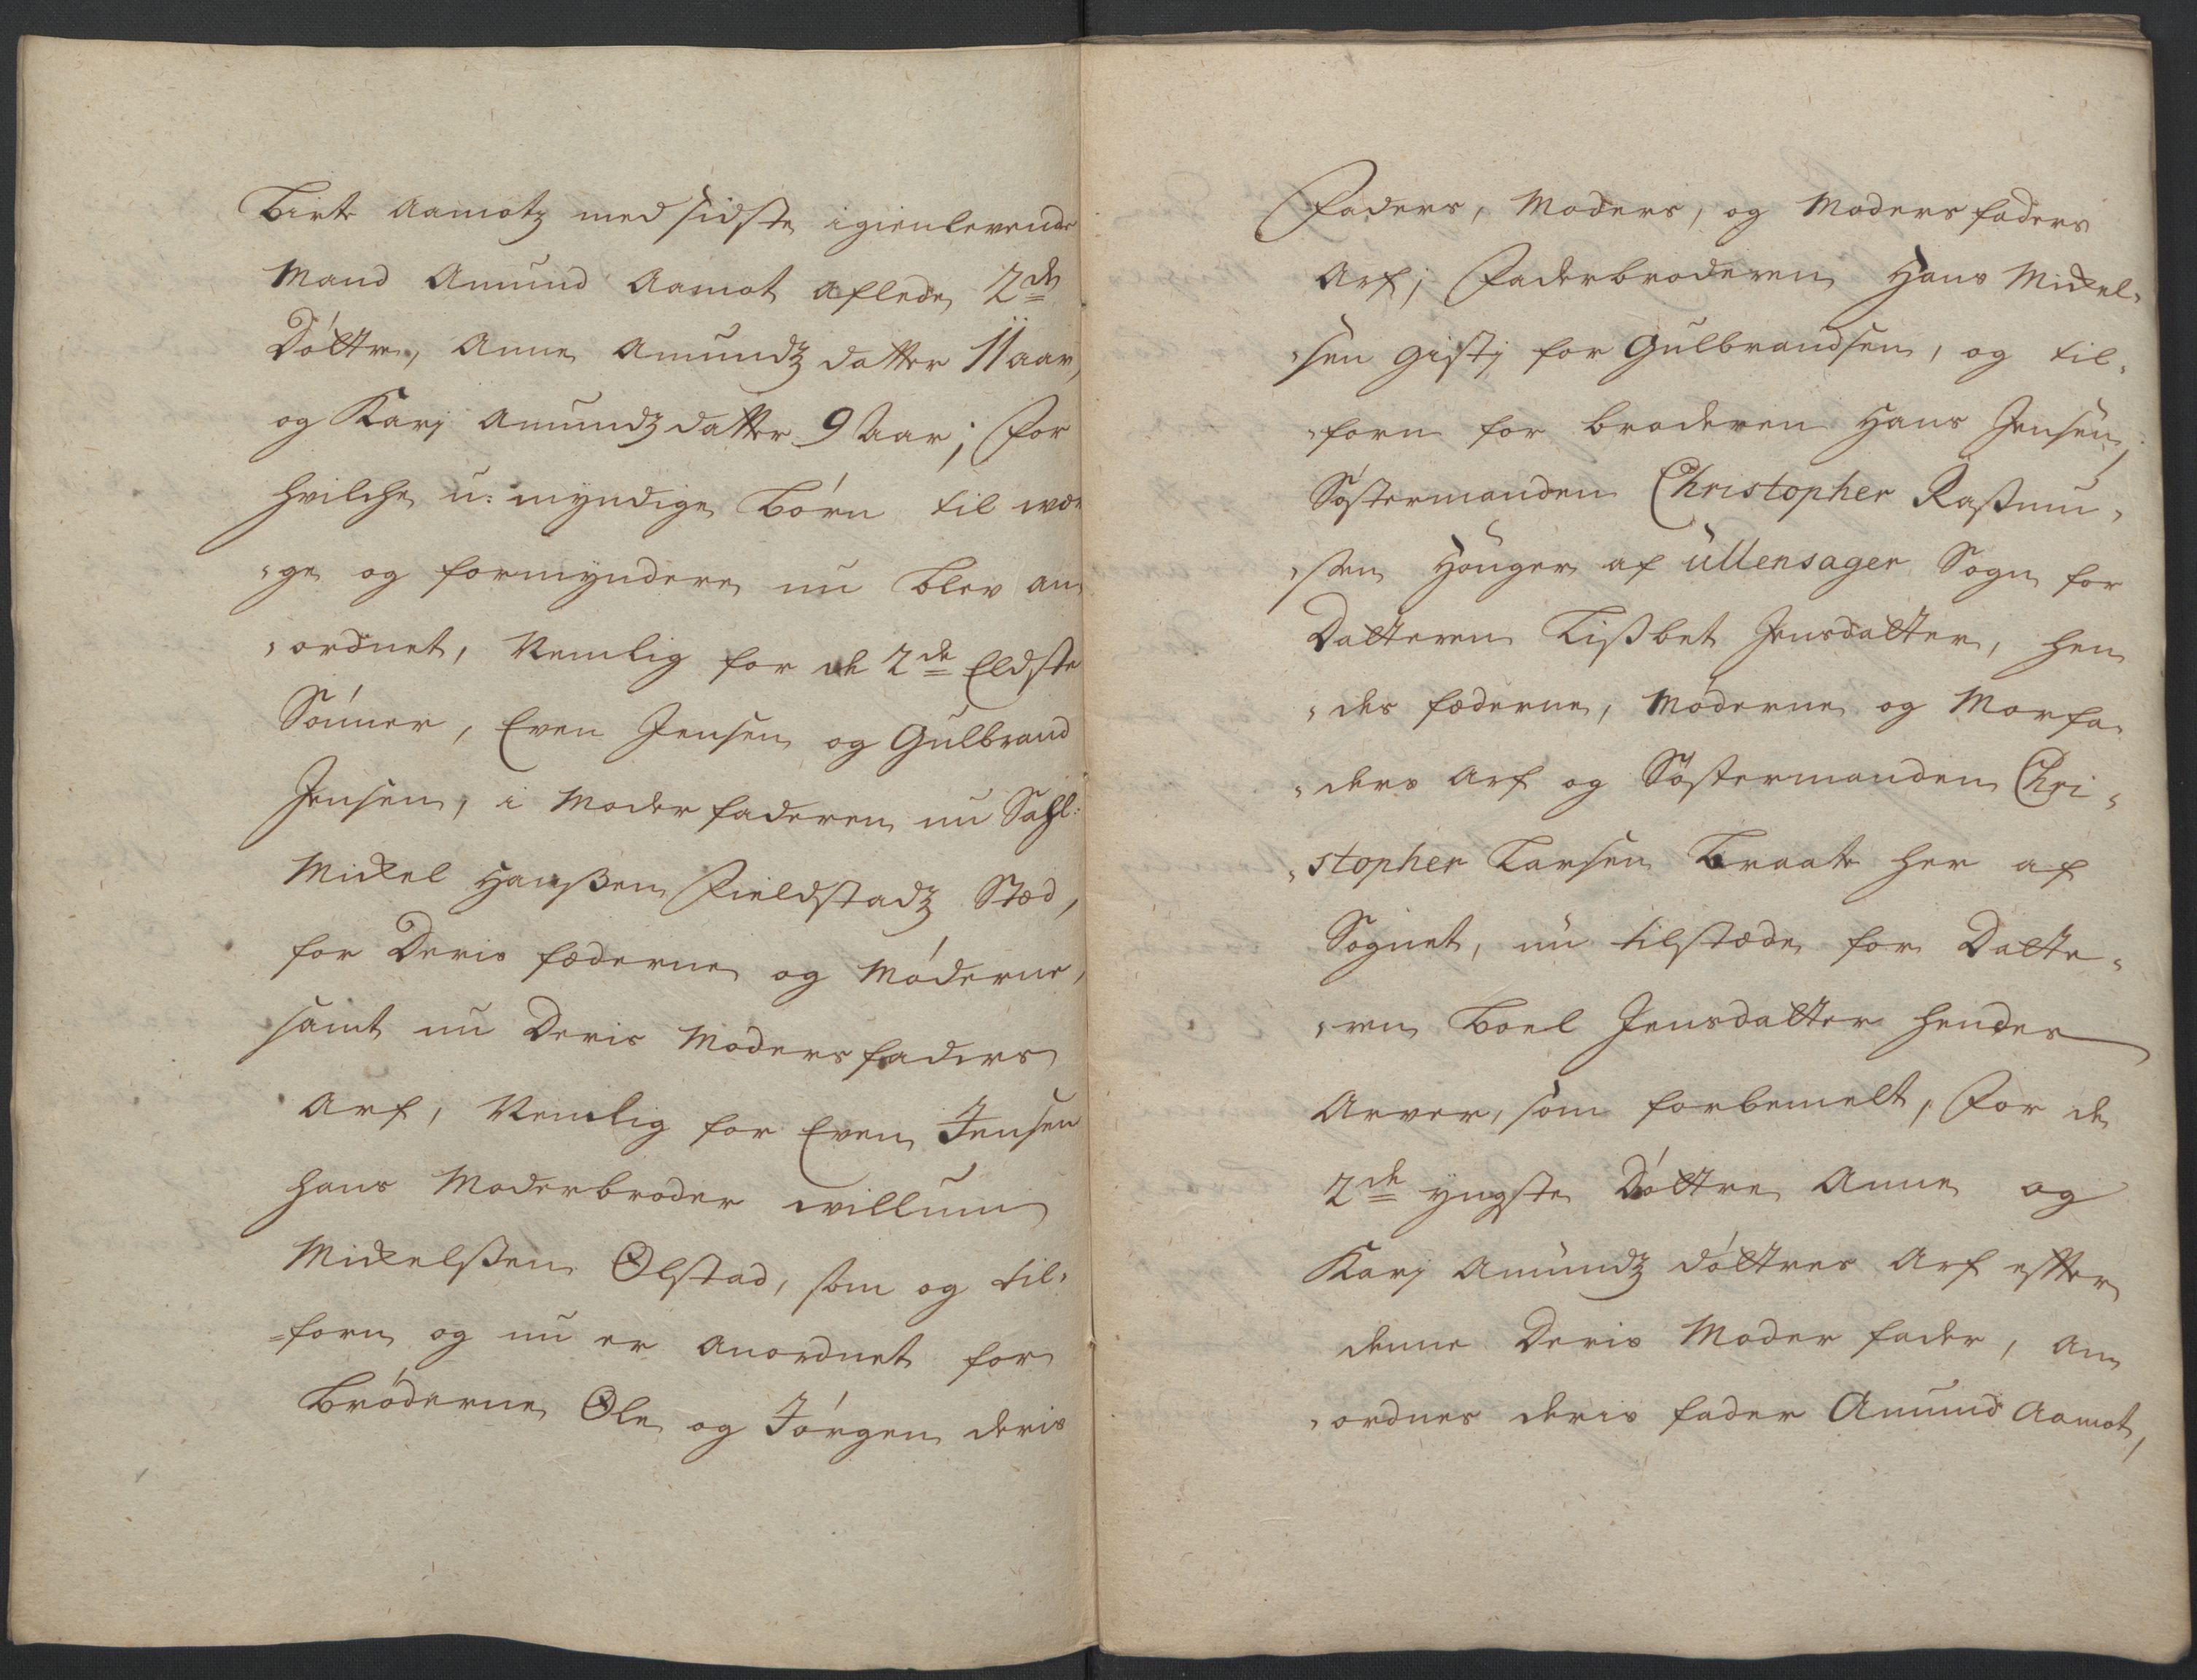 Birte Aamotz med sidste igienlevende
Mand Amund Aamot aflede 2de
Döttre, Anne Amundz datter 11 aar,
og Karj Amundz datter 9 Aar; for
hvilche u: myndige Börn til wær
"ge og formyndere nu blev an
"ordnet, Nemlig for de 2de Eldste
Sönner, Even Jensen og Gulbrand
Jensen, i Moder faderen nu Sahl:
Mickel Hanßen Fieldstadz Stæd,
for Deris fæderne og Möderne,
samt nu Deris Moders faders
Arf, Nemlig for Even Jensen
hans Moderbroder willum
Mickelßen Olstad, som og til"
=forn og nu er anordnet for
Bröderne Ole og Jörgen deris
Faders, Moders, og Moders faders
Arf; Faderbroderen Hans Mickel"
"sen Gistj for Gulbrandsen, og til"
"forn for broderen Hans Jensen,
Söstermanden Christopher Raßmu"
"sen Hönger af Ullensager Sogn for
Datteren Lißbet Jensdatter, hen
"des fæderne, Möderne og Morfa"
"ders Arf og Söstermanden Chri"
"stopher Larsen Braate her af
Sognet, nu tilstæde for Datte"
"ren Boel Jensdatter hendes
Arver, som forbemelt, For de
2de yngste Döttre Anne og
Karj Amundz döttres Arf efter
denne Deris Moder fader, an
"ordnes deris fader Amund Aamot,